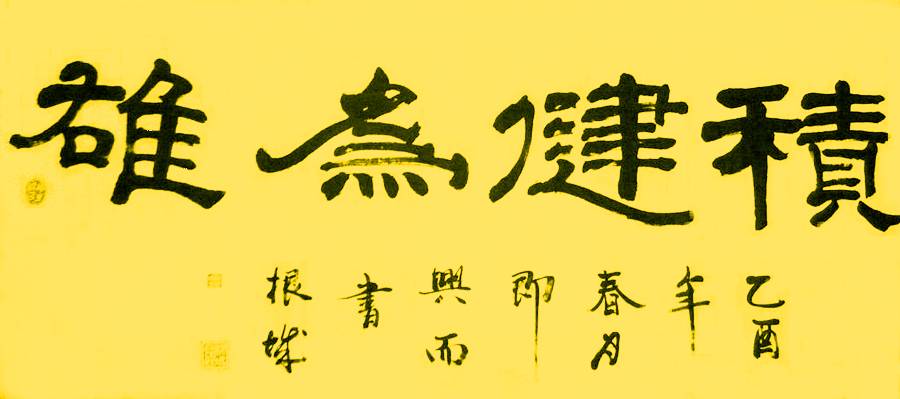 積健為雄
乙酉
年
春月
即
興而
書
根城